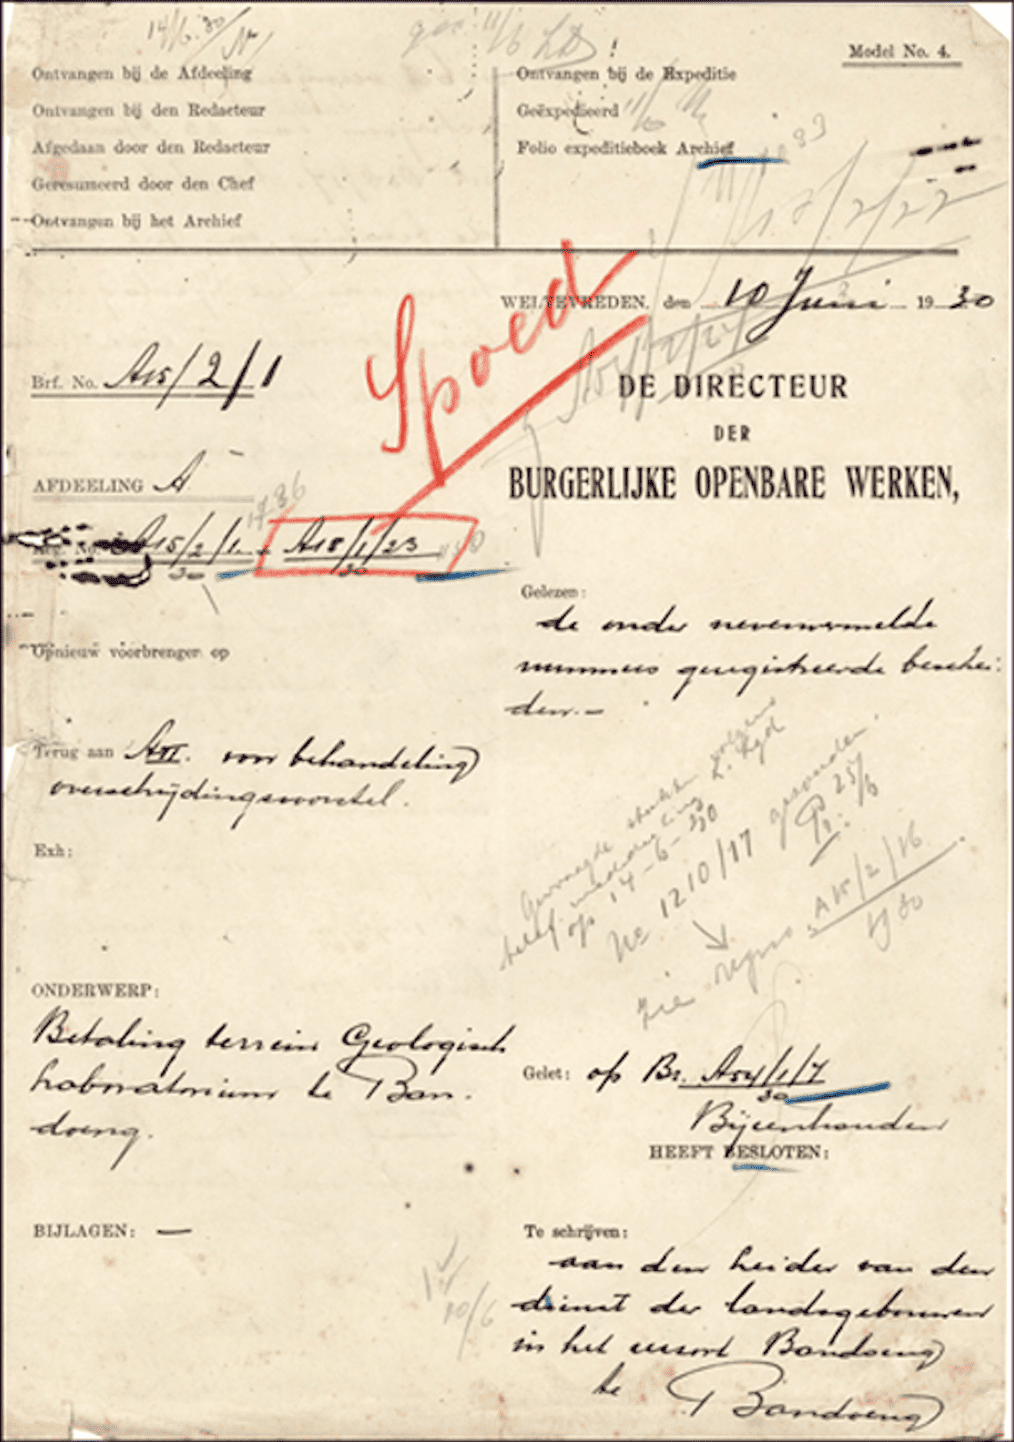 14/6 30
Model No. 4.
Ontvangen bij de Afdeeling
Ontvangen bij den Redacteur
Afgedaan door den Redacteur
Geresumeerd door den Chef
Ontvangen bij het Archief
Ontvangen bij de Expeditie
Geëxpedieerd 11/6
Folio expeditieboek Archief
Spoed
WELTEVREDEN, den 10 Juni 1930
Brf. No. A15/2/1
DE DIRECTEUR
DER
BURGERLIJKE OPENBARE WERKEN,
AFDEELING A
Reg. No. A15/2/1. A15/1/23
30 30
Gelezen:
de onder nevenvermelde
nummers geregistreerde beschei-
den.—
Opnieuw voorbrengen op
Terug aan AVI. voor behandeling
overschrijdingsvoorstel.
Exh:
op 14-6-30
No. 1210/17 gezonden
25/6
zie A15/2/16
30
ONDERWERP:
Betaling terrein Geologisch
Laboratorium te Ban-
doeng.
Gelet: op Br. /1/7
30
Bijeenhouden
HEEFT BESLOTEN:
BIJLAGEN: —
10/6
Te schrijven:
aan den Leider van den
dienst der Landsgebouwen
in het ressort Bandoeng
te Bandoeng